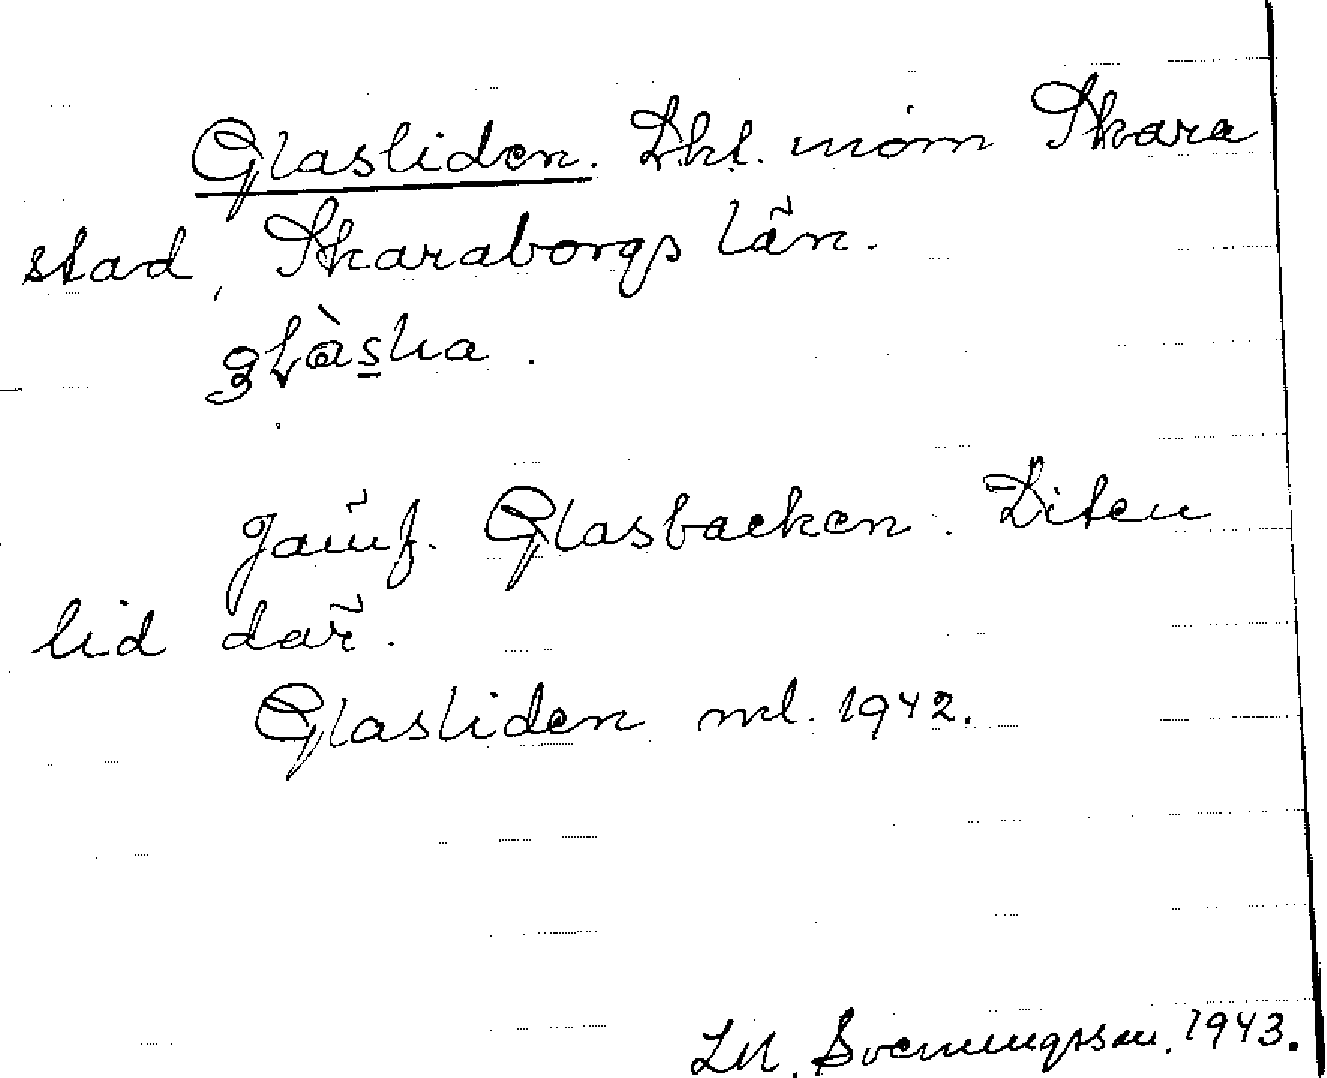 Glasliden. Lkl. inom Skara
stad, Skaraborgs län.
glàslia.
Jämf. Glasbacken. Liten
lid där.
Glasliden ml. 1942.
Svenningsson. 1943.